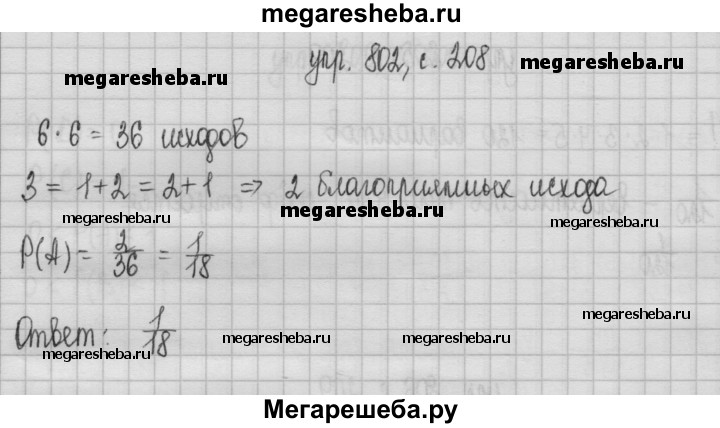 megaresheba.ru
упр. 802, с. 208
megaresheba.ru
megaresheba.ru
6 · 6 = 36 исходов
3 = 1+2 = 2+1 => 2 благоприятных исхода
megaresheba.ru
megaresheba.ru
megaresheba.ru
P(A) = 2/36 = 1/18
Ответ: 1/18
megaresheba.ru
megaresheba.ru
megaresheba.ru
Мегарешеба.ру